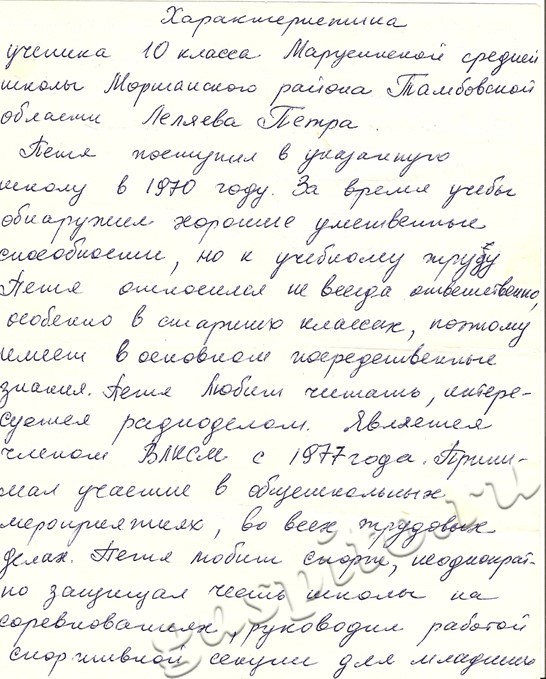 Характеристика
ученика 10 класса Марусинской средней
школы Моршанского района Тамбовской
области Леляева Петра
Петя поступил в указанную
школу в 1970 году. За время учебы
обнаружил хорошие умственные
способности, но к учебному труду
Петя относился не всегда ответственно,
особенно в старших классах, поэтому
имеет в основном посредственные
знания. Петя любит читать, интере-
суется радиоделом. Является
членом ВЛКСМ с 1977 года. Прини-
мал участие в общешкольных
мероприятиях, во всех трудовых
делах. Петя любит спорт, неоднократ-
но защищал честь школы на
соревнованиях, руководил работой
спортивной секции для младших